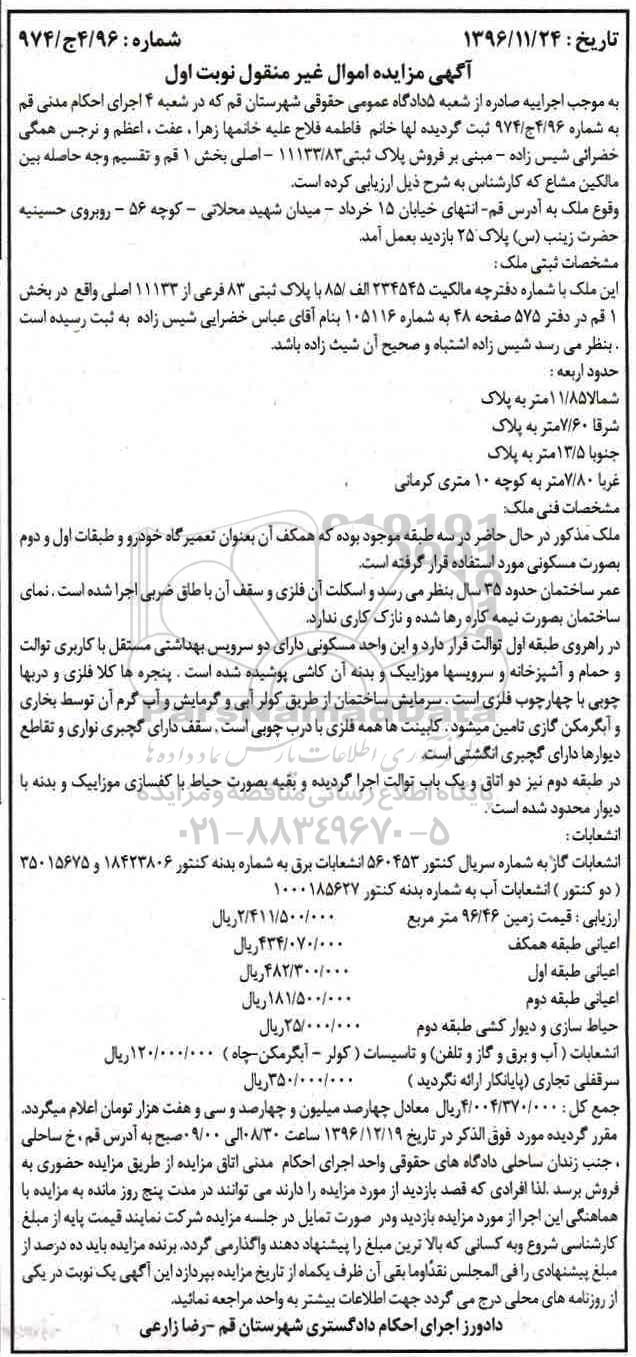 تاریخ : ۱۳۹۶/۱۱/۲۴
شماره : ۴/۹۶ج/۹۷۴
آگهی مزایده اموال غیر منقول نوبت اول
به موجب اجراییه صادره از شعبه ۵دادگاه عمومی حقوقی شهرستان قم که در شعبه ۴ اجرای احکام مدنی قم
به شماره ۴/۹۶ج/۹۷۴ ثبت گردیده لها خانم فاطمه فلاح علیه خانمها زهرا ، عفت ، اعظم و نرجس همگی
خضرائی شیس زاده – مبنی بر فروش پلاک ثبتی۱۱۱۳۳/۸۳ – اصلی بخش ۱ قم و تقسیم وجه حاصله بین
مالکین مشاع که کارشناس به شرح ذیل ارزیابی کرده است.
وقوع ملک به آدرس قم- انتهای خیابان ۱۵ خرداد – میدان شهید محلاتی – کوچه ۵۶ – روبروی حسینیه
حضرت زینب (س) پلاک ۲۵ بازدید بعمل آمد.
مشخصات ثبتی ملک :
این ملک با شماره دفترچه مالکیت ۲۳۴۵۴۵ الف /۸۵ با پلاک ثبتی ۸۳ فرعی از ۱۱۱۳۳ اصلی واقع در بخش
۱ قم در دفتر ۵۷۵ صفحه ۴۸ به شماره ۱۰۵۱۱۶ بنام آقای عباس خضرایی شیس زاده به ثبت رسیده است
. بنظر می رسد شیس زاده اشتباه و صحیح آن شیث زاده باشد.
حدود اربعه :
شمالا۱۱/۸۵متر به پلاک
شرقا ۷/۶۰متر به پلاک
جنوبا ۱۳/۵متر به پلاک
غربا ۷/۸۰متر به کوچه ۱۰ متری کرمانی
مشخصات فنی ملک:
ملک مذکور در حال حاضر در سه طبقه موجود بوده که همکف آن بعنوان تعمیرگاه خودرو و طبقات اول و دوم
بصورت مسکونی مورد استفاده قرار گرفته است.
عمر ساختمان حدود ۳۵ سال بنظر می رسد و اسکلت آن فلزی و سقف آن با طاق ضربی اجرا شده است . نمای
ساختمان بصورت نیمه کاره رها شده و نازک کاری ندارد.
در راهروی طبقه اول توالت قرار دارد و این واحد مسکونی دارای دو سرویس بهداشتی مستقل با کاربری توالت
و حمام و آشپزخانه و سرویسها موزاییک و بدنه آن کاشی پوشیده شده است . پنجره ها کلا فلزی و دربها
چوبی با چهارچوب فلزی است . سرمایش ساختمان از طریق کولر آبی و گرمایش و آب گرم آن توسط بخاری
و آبگرمکن گازی تامین میشود . کابینت ها همه فلزی با درب چوبی است . سقف دارای گچبری نواری و تقاطع
دیوارها دارای گچبری انگشتی است.
در طبقه دوم نیز دو اتاق و یک باب توالت اجرا گردیده و بقیه بصورت حیاط با کفسازی موزاییک و بدنه با
دیوار محدود شده است .
انشعابات :
انشعابات گاز به شماره سریال کنتور ۵۶۰۴۵۳ انشعابات برق به شماره بدنه کنتور ۱۸۴۲۳۸۰۶ و ۳۵۰۱۵۶۷۵
( دو کنتور ) انشعابات آب به شماره بدنه کنتور ۱۰۰۰۱۸۵۶۲۷
ارزیابی : قیمت زمین ۹۶/۴۶ متر مربع ۲/۴۱۱/۵۰۰/۰۰۰ریال
اعیانی طبقه همکف ۴۳۴/۰۷۰/۰۰۰ریال
اعیانی طبقه اول ۴۸۲/۳۰۰/۰۰۰ریال
اعیانی طبقه دوم ۱۸۱/۵۰۰/۰۰۰ریال
حیاط سازی و دیوار کشی طبقه دوم ۲۵/۰۰۰/۰۰۰ریال
انشعابات ( آب و برق و گاز و تلفن) و تاسیسات ( کولر – آبگرمکن-چاه ) ۱۲۰/۰۰۰/۰۰۰ریال
سرقفلی تجاری (پایانکار ارائه نگردید ) ۳۵۰/۰۰۰/۰۰۰ریال
جمع کل : ۴/۰۰۴/۳۷۰/۰۰۰ریال معادل چهارصد میلیون و چهارصد و سی و هفت هزار تومان اعلام میگردد.
مقرر گردیده مورد فوق الذکر در تاریخ ۱۳۹۶/۱۲/۱۹ ساعت ۰۸/۳۰الی ۰۹/۰۰صبح به آدرس قم ، خ ساحلی
، جنب زندان ساحلی دادگاه های حقوقی واحد اجرای احکام مدنی اتاق مزایده از طریق مزایده حضوری به
فروش برسد .لذا افرادی که قصد بازدید از مورد مزایده را دارند می توانند در مدت پنج روز مانده به مزایده با
هماهنگی این اجرا از مورد مزایده بازدید ودر صورت تمایل در جلسه مزایده شرکت نمایند قیمت پایه از مبلغ
کارشناسی شروع وبه کسانی که بالا ترین مبلغ را پیشنهاد دهند واگذارمی گردد. برنده مزایده باید ده درصد از
مبلغ پیشنهادی را فی المجلس نقدًاوما بقی آن ظرف یکماه از تاریخ مزایده بپردازد این آگهی یک نوبت در یکی
از روزنامه های محلی درج می گردد جهت اطلاعات بیشتر به واحد مراجعه نمائید.
دادورز اجرای احکام دادگستری شهرستان قم -رضا زارعی
ParsNamadData
پایگاه اطلاع رسانی مناقصه و مزایده
۰۲۱-۸۸۳۴۹۶۷۰-۵